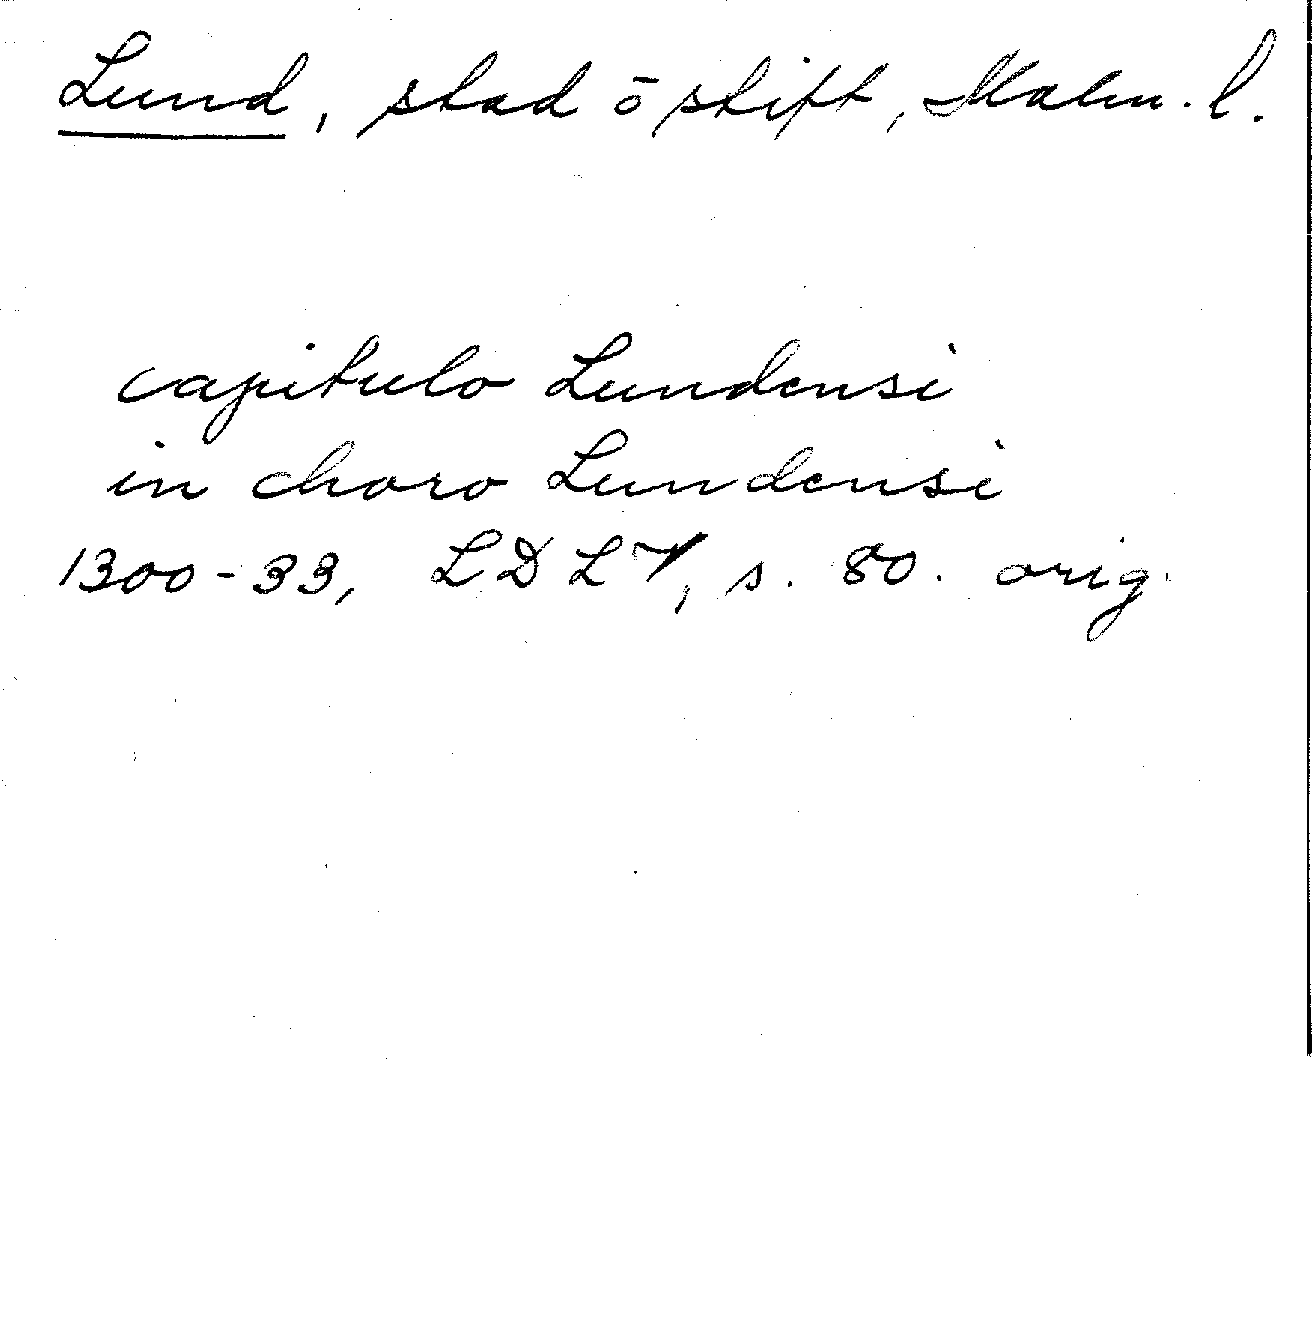 Lund, stad ō stift, Malm. l.
capitulo Lundensi
in choro Lundensi
1300-33, LDLV, s. 80. orig.